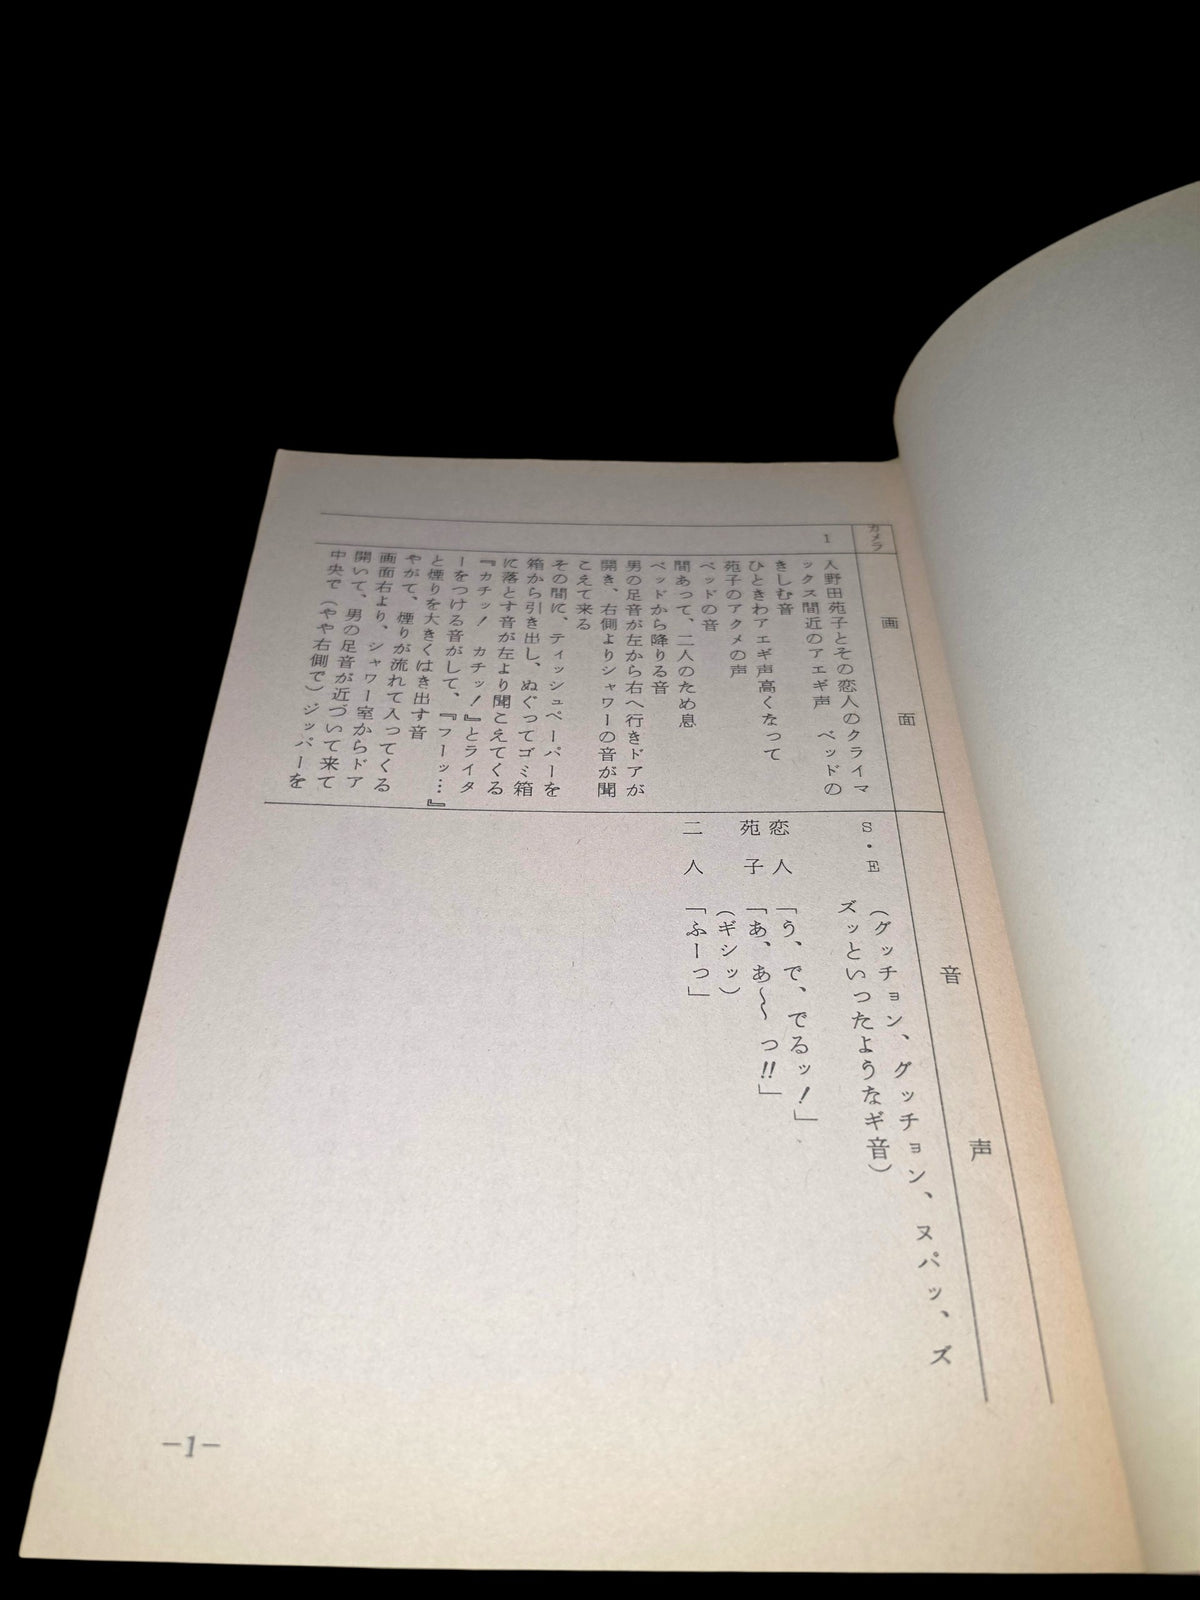 カメラ
画面
音声
1
人野田苑子とその恋人のクライマ
ックス間近のアエギ声　ベッドの
きしむ音
ひときわアエギ声高くなって
苑子のアクメの声
ベッドの音
間あって、二人のため息
ベッドから降りる音
男の足音が左から右へ行きドアが
開き、右側よりシャワーの音が聞
こえて来る
その間に、ティッシュペーパーを
箱から引き出し、ぬぐってゴミ箱
に落とす音が左より聞こえてくる
『カチッ！　カチッ！』とライタ
ーをつける音がして、『フーッ…』
と煙りを大きくはき出す音
やがて、煙りが流れて入ってくる
画面右より、シャワー室からドア
開いて、男の足音が近づいて来て
中央で（やや右側で）ジッパーを
S・E　（グッチョン、グッチョン、ヌパッ、ズ
ズッといったようなギ音）
恋人　「う、で、でるッ！」
苑子　「あ、あ〜〜っ!!」
（ギシッ）
二人　「ふーっ」
−1−